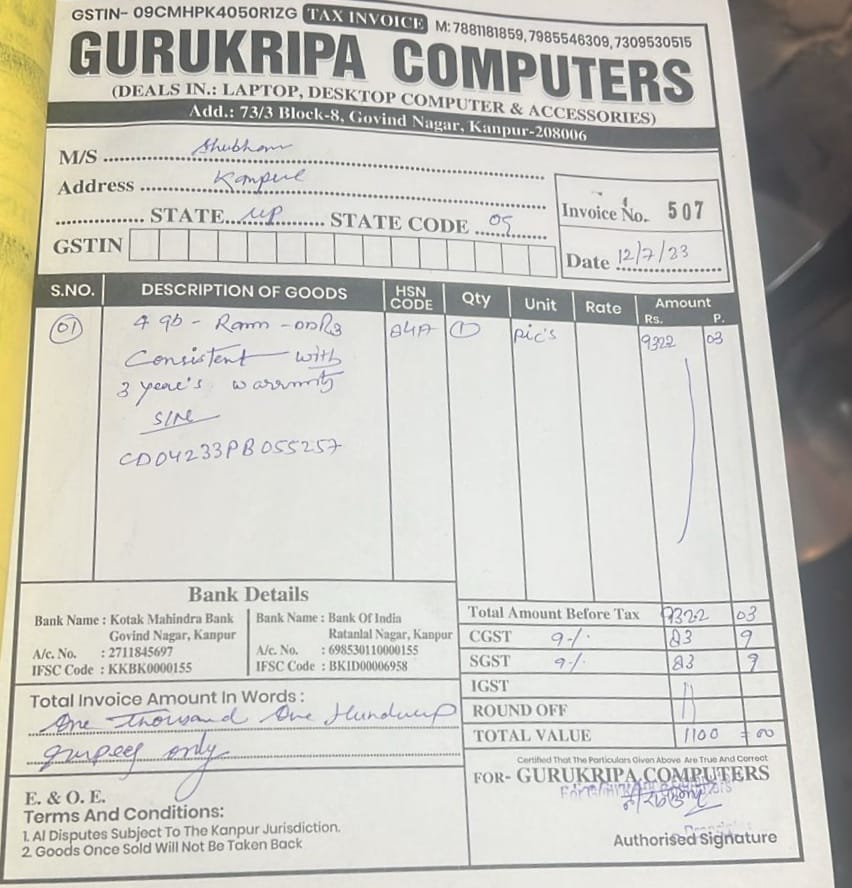 GSTIN- 09CMHPK4050R1ZG TAX INVOICE M: 7881181859, 7985546309, 7309530515
GURUKRIPA COMPUTERS
(DEALS IN.: LAPTOP, DESKTOP COMPUTER & ACCESSORIES)
Add.: 73/3 Block-8, Govind Nagar, Kanpur-208006
M/S Shubham
Address Kanpur
STATE UP STATE CODE 09
GSTIN
Invoice No. 507
Date 12/7/23
S.NO. DESCRIPTION OF GOODS HSN CODE Qty Unit Rate Amount
Rs. P.
01 4 gb - Ram - DDR3 847 1 pic's 9322 03
Consistent with
3 year's warrenty
S/N
CD04233PB055257
Bank Details
Bank Name : Kotak Mahindra Bank
Govind Nagar, Kanpur
A/c. No. : 2711845697
IFSC Code : KKBK0000155
Bank Name : Bank Of India
Ratanlal Nagar, Kanpur
A/c. No. : 698530110000155
IFSC Code : BKID00006958
Total Amount Before Tax 9322 03
CGST 9-/. 83 9
SGST 9-/. 83 9
IGST
ROUND OFF
TOTAL VALUE 1100 = 00
Total Invoice Amount In Words :
One Thousand One Hundred
rupees only
Certified That The Particulars Given Above Are True And Correct
FOR- GURUKRIPA COMPUTERS
E. & O. E.
Terms And Conditions:
1. Al Disputes Subject To The Kanpur Jurisdiction.
2. Goods Once Sold Will Not Be Taken Back
Authorised Signature